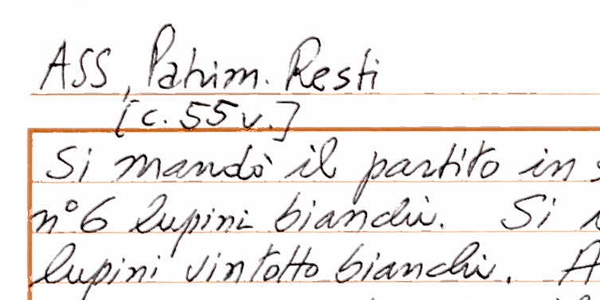 ASS, Patrim. Resti
[c. 55v.]
Si mandò il partito in
n° 6 lupini bianchi. Si
lupini vintotto bianchi. A